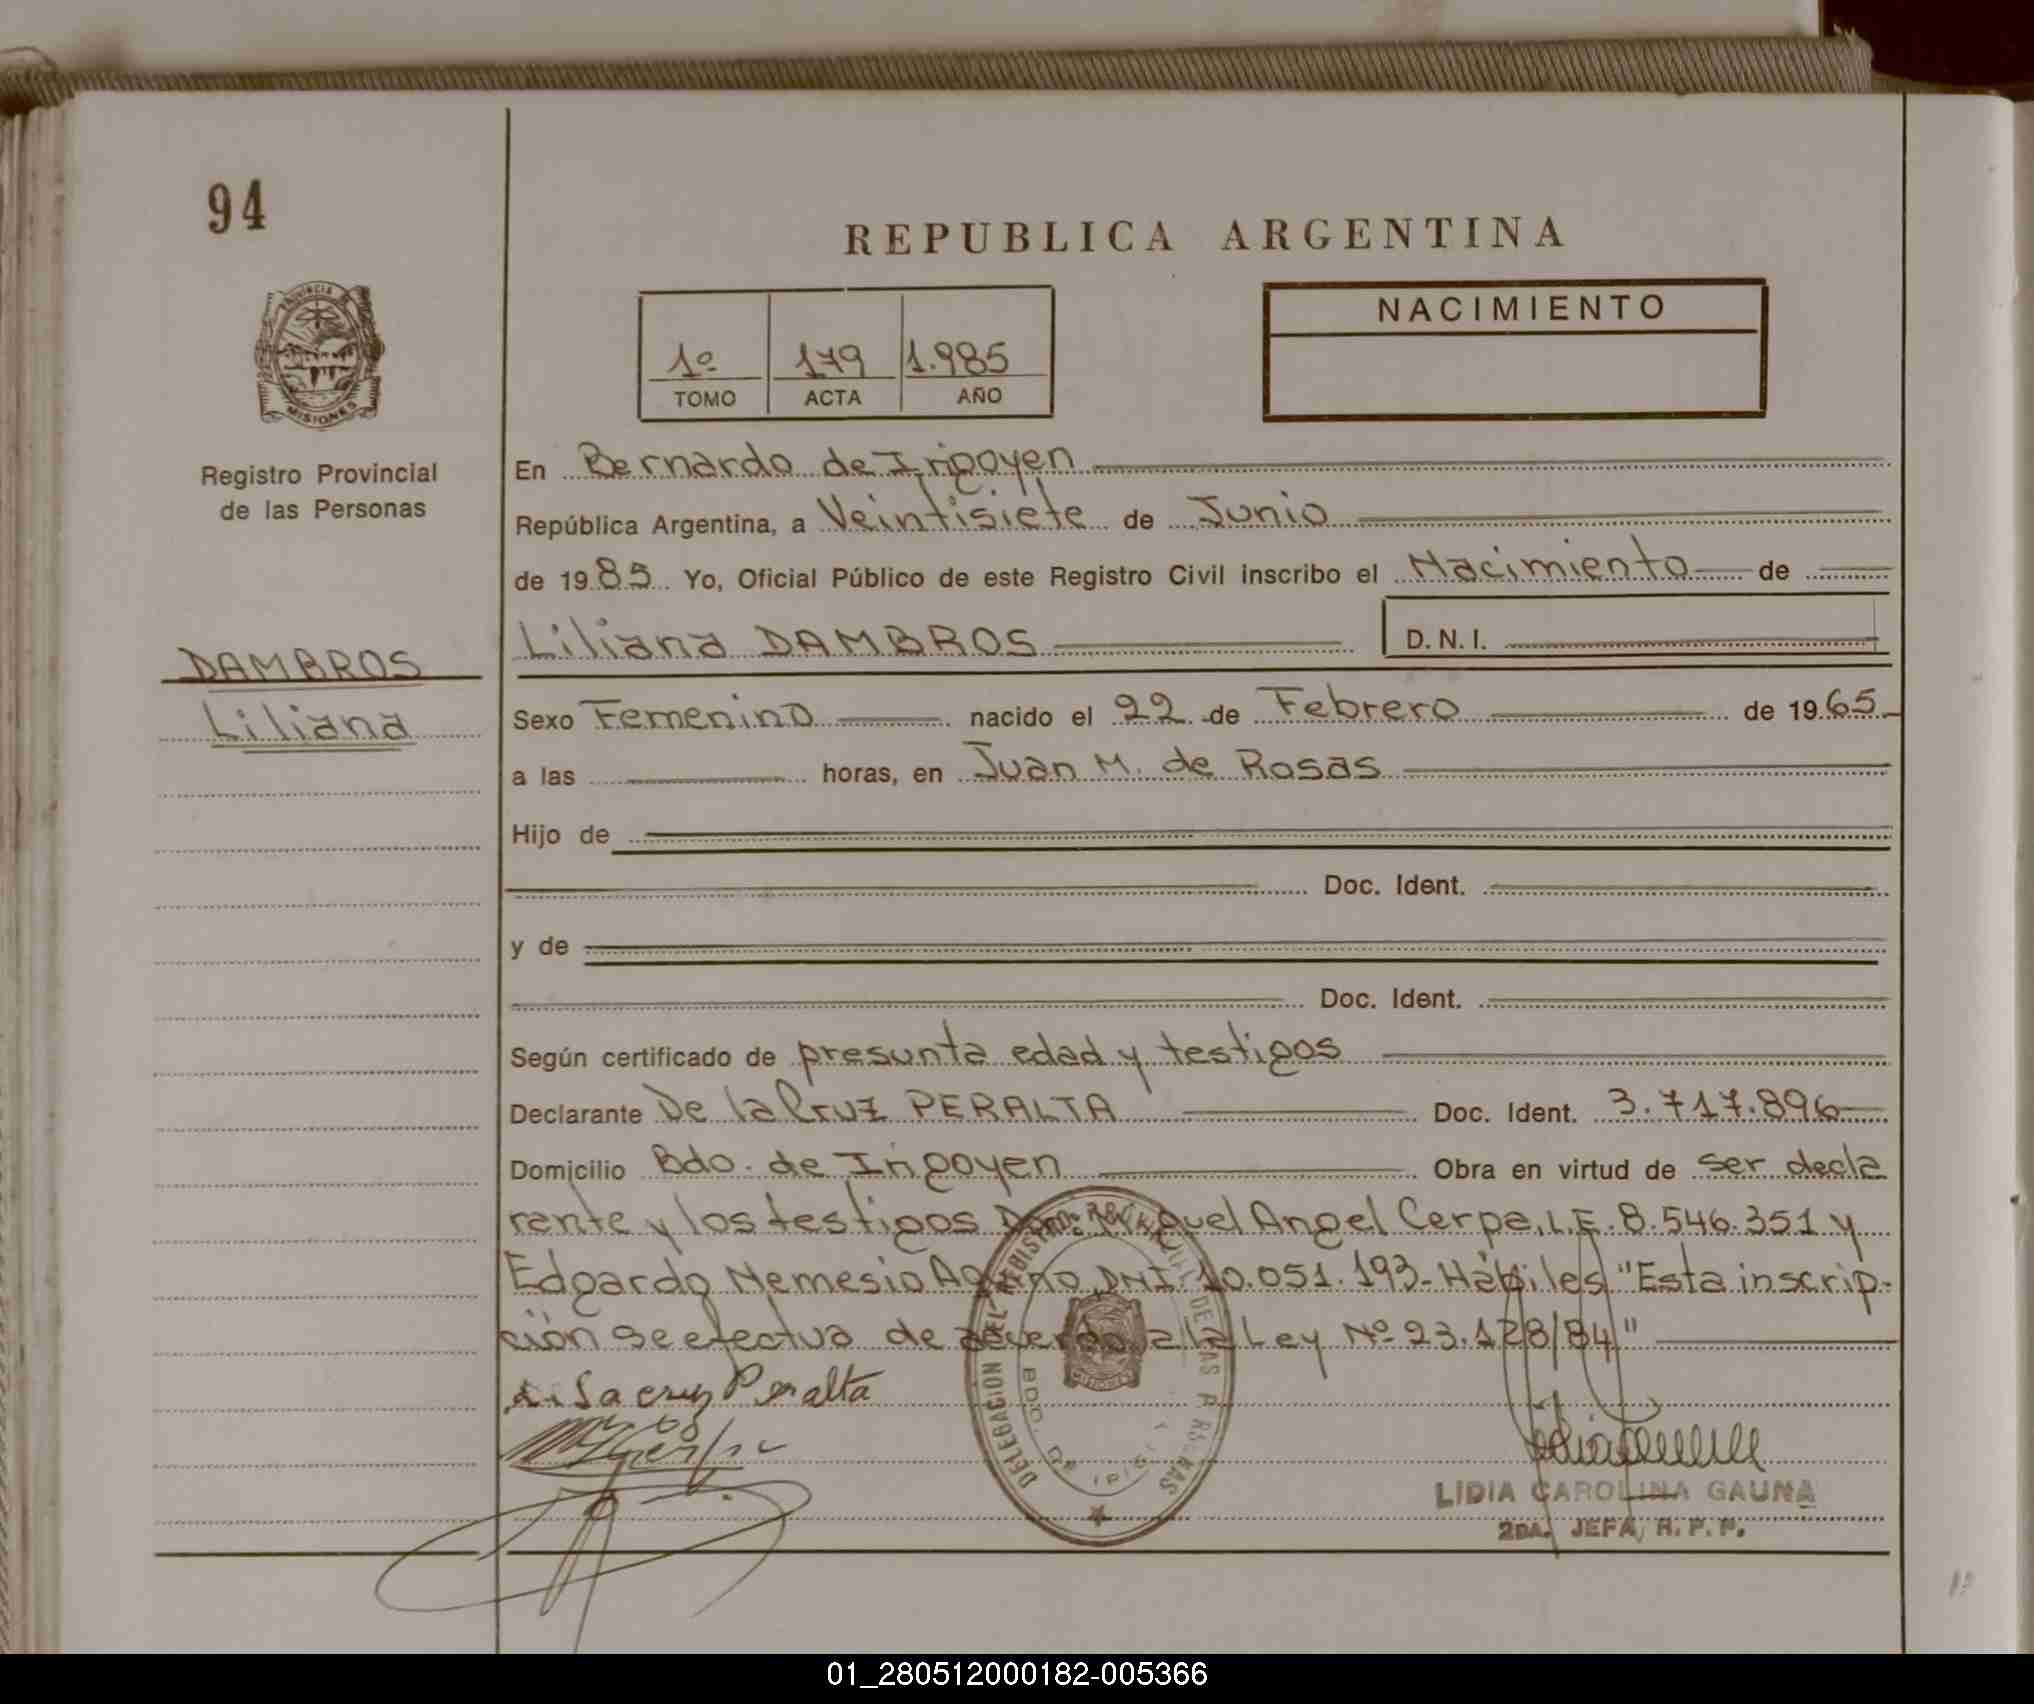 94
REPUBLICA ARGENTINA
NACIMIENTO
1º 179 1.985
TOMO ACTA AÑO
PROVINCIA DE
MISIONES
Registro Provincial
de las Personas
DAMBROS
Liliana
En Bernardo de Irigoyen
República Argentina, a Veintisiete de Junio
de 1985 Yo, Oficial Público de este Registro Civil inscribo el Nacimiento de
Liliana DAMBROS D.N.I.
Sexo Femenino nacido el 22 de Febrero de 1965
a las horas, en Juan M. de Rosas
Hijo de
Doc. Ident.
y de
Doc. Ident.
Según certificado de presunta edad y testigos
Declarante De la Cruz PERALTA Doc. Ident. 3.717.896
Domicilio Bdo. de Irigoyen Obra en virtud de ser decla
rante y los testigos Miguel Angel Cerpa, L.E. 8.546.351 y
Edgardo Nemesio DNI. 10.051.193- Hábiles "Esta inscrip-
ción se efectua de acuerdo a la Ley Nº 23.128/84"
de la cruz Peralta
DELEGACION DEL REGISTRO PROVINCIAL DE LAS PERSONAS
BDO. DE IRIGOYEN
MISIONES
LIDIA CAROLINA GAUNA
2DA. JEFA, R. P. P.
01_280512000182-005366